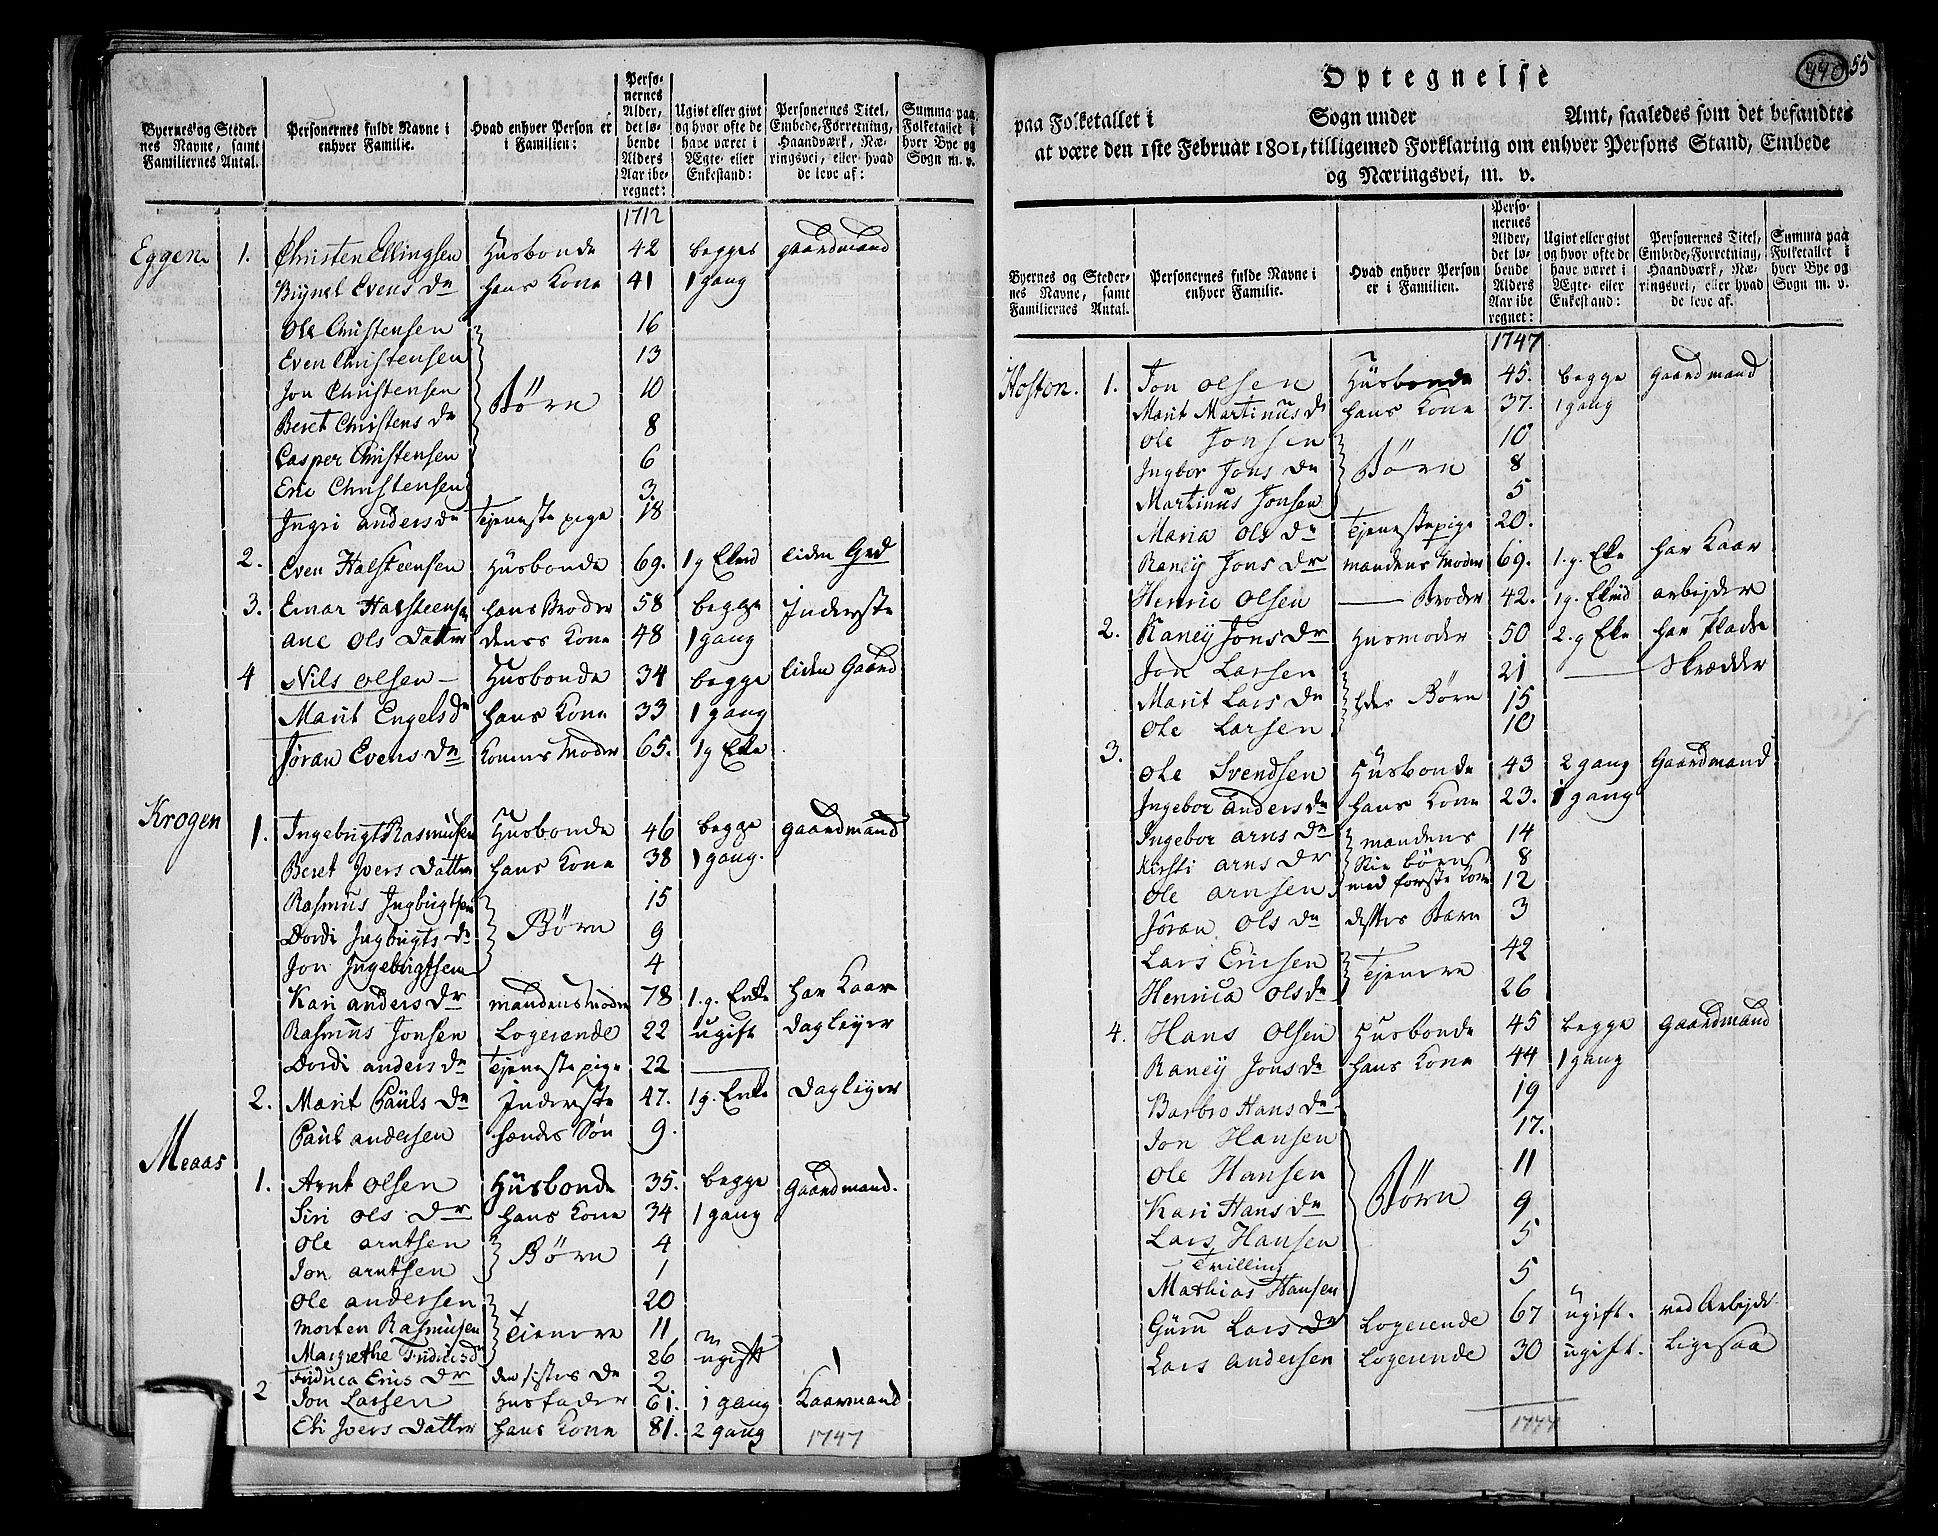 Byernes og Steder nes Navne, samt Familiernes Antal.
Personernes fulde Navne i enhver Familie.
Hvad enhver Person er i Familien:
Perso- nernes Alder, det lø- bende Alders Aar ibe- regnet:
Ugivt eller givt og hvor ofte de have været i Ægte- eller Enkestand:
Personernes Titel, Embede, Forretning, Haandværk, Næ- ringsvei, eller hvad de leve af:
Summa paa Folketallet i hver Bye og Sogn m. v.
1712
Eggen 1. Christen Ellingsen Husbonde 42 begges gaardmand
Brynel Evens Dr hans Kone 41 1 gang
Ole Christensen 16
Even Christensen 13
Jon Christensen Børn 10
Beret Christens Dr 8
Casper Christensen 6
Eric Christensen 3.
Ingri anders Dr Tjeneste pige 18
2. Even Halsteensen Husbonde 69. 1 g Ekmd liden Grd
3. Einar Halsteensen hans Broder 58 begge Inderste
ane Ols Datter dens Kone 48 1 gang
4 Nils olsen Husbonde 34 begge liden Gaard
Marit Engels Dr hans Kone 33 1 gang
Jøran Evens Dr Konens Moder 65. 1 g Eke
Krogen 1. Ingebrigt Rasmusen Husbonde 46 begge gaardmand
Beret Ivers Datter hans Kone 38 1 gang.
Rasmus Ingbrigtsen 15
Dordi Ingbrigts Dr Børn 9
Jon Ingebrigtsen 4
Kari anders Dr mandens Moder 78 1. g. Enke har Kaar
Rasmus Jonsen Logerende 22 ugift dagleyer
Dordi anders Dr Tjeneste pige 22
2. Marit Pauls Dr Inderste 47. 1 g. Enke dagleyer
Paul andersen hendes Søn 9.
Meaas 1. Arnt olsen Husbonde 35. begge Gaardmand.
Siri ols Dr hans Kone 34 1 gang
Ole arntsen Børn 4
Jon arntsen 1
Ole andersen 20
Morten Rasmusen Tienere 11
Margrethe 26 ugift
Eris Dr den sistes Dr 2.
2 Jon Larsen Husfader 61. 1 gang Kaarmand
Eli Ivers Datter hans Kone 81. 2 gang
1747
440 55
Optegnelse
paa Folketallet i Sogn under Amt, saaledes som det befandtes
at være den 1ste Februar 1801, tilligemed Forklaring om enhver Persons Stand, Embede
og Næringsvei, m. v.
Byernes og Steder- nes Navne, samt Familiernes Antal.
Personernes fulde Navne i enhver Familie.
Hvad enhver Person er i Familien.
Perso- nernes Alder, det lø- bende Alders Aar ibe- regnet:
Ugivt eller givt og hvor ofte de have været i Ægte- eller Enkestand:
Personernes Titel, Embede, Forretning, Haandværk, Næ- ringsvei, eller hvad de leve af.
Summa paa Folketallet i hver Bye og Sogn m. v.
1747
Hoston. 1. Jon olsen Husbonde 45. begge gaardmand
Marit Martinus Dr hans Kone 37. 1 gang
Ole Jonsen 10
Ingbor Jons Dr Børn 8
Martinus Jonsen 5
Maria Ols Dr Tjenestepige 20.
Raney Jons Dr mandens Moder 69. 1. g. Eke har Kaar
Henric Olsen — Broder 42. 1 g. Ekmd arbejder
2. Raney Jons Dr Husmoder 50 2. g Eke har Pladse
Jon Larsen 21 Skrædder
Marit Lars Dr hdes Børn 15
Ole Larsen 10
3. Ole Svendsen Husbonde 43 2 gang Gaardmand
Ingebor anders Dr hans Kone 23. 1 gang
Ingebor arns Dr mandens 14
Kirsti arns Dr Stif børn 8
Ole arnsen med første Kone 12
Jøran Ols Dr dettes Barn 3
Lars Ericsen Tjenere 42
Henrica Ols Dr 26
4. Hans Olsen Husbonde 45 begge Gaardmand
Raney Jons Dr hans Kone 44 1 gang
Barbro Hans Dr 19
Jon Hansen 17.
Ole Hansen 11
Kari Hans Dr Børn 9
Lars Hansen 5
Tvilling
Mathias Hansen 5
Guru Lars Dr Logerende 67 ugift. ved Arbejde
Lars andersen Logerende 30 ugift. ligesaa
1777